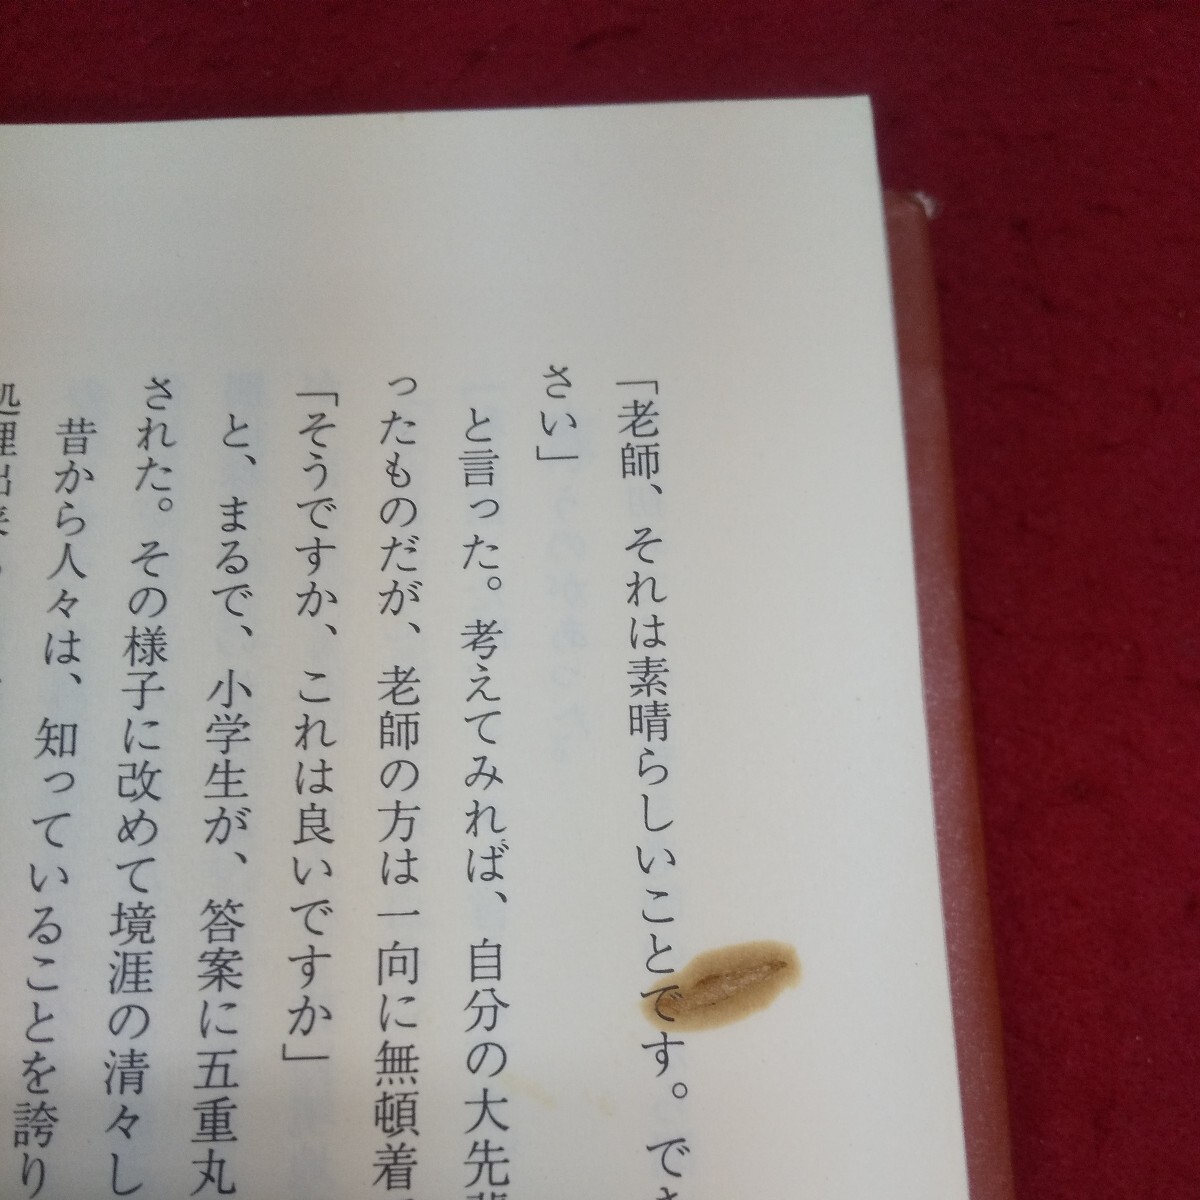 「老師、それは素晴らしいことです。でき
さい」
と言った。考えてみれば、自分の大先輩
ったものだが、老師の方は一向に無頓着で
「そうですか、これは良いですか」
と、まるで、小学生が、答案に五重丸
された。その様子に改めて境涯の清々し
昔から人々は、知っていることを誇り
処理出来